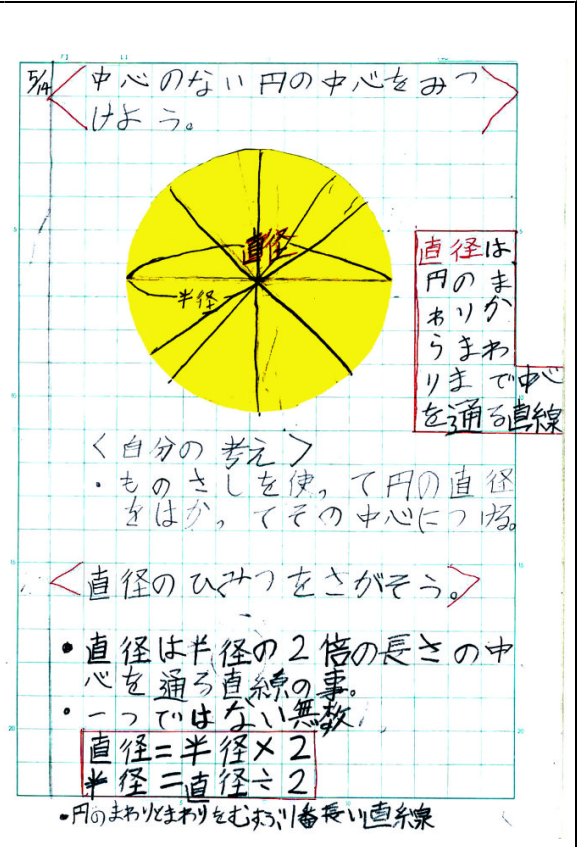 5/14
中心のない円の中心をみつ
けよう。
直径
半径
直径は
円のま
わりか
らまわ
りまで中心
を通る直線
＜自分の考え＞
・ものさしを使って円の直径
をはかってその中心につける。
直径のひみつをさがそう。
・直径は半径の2倍の長さの中
心を通る直線の事。
・一つではない無数
直径＝半径×2
半径＝直径÷2
・円のまわりとまわりをむすぶ1番長い直線